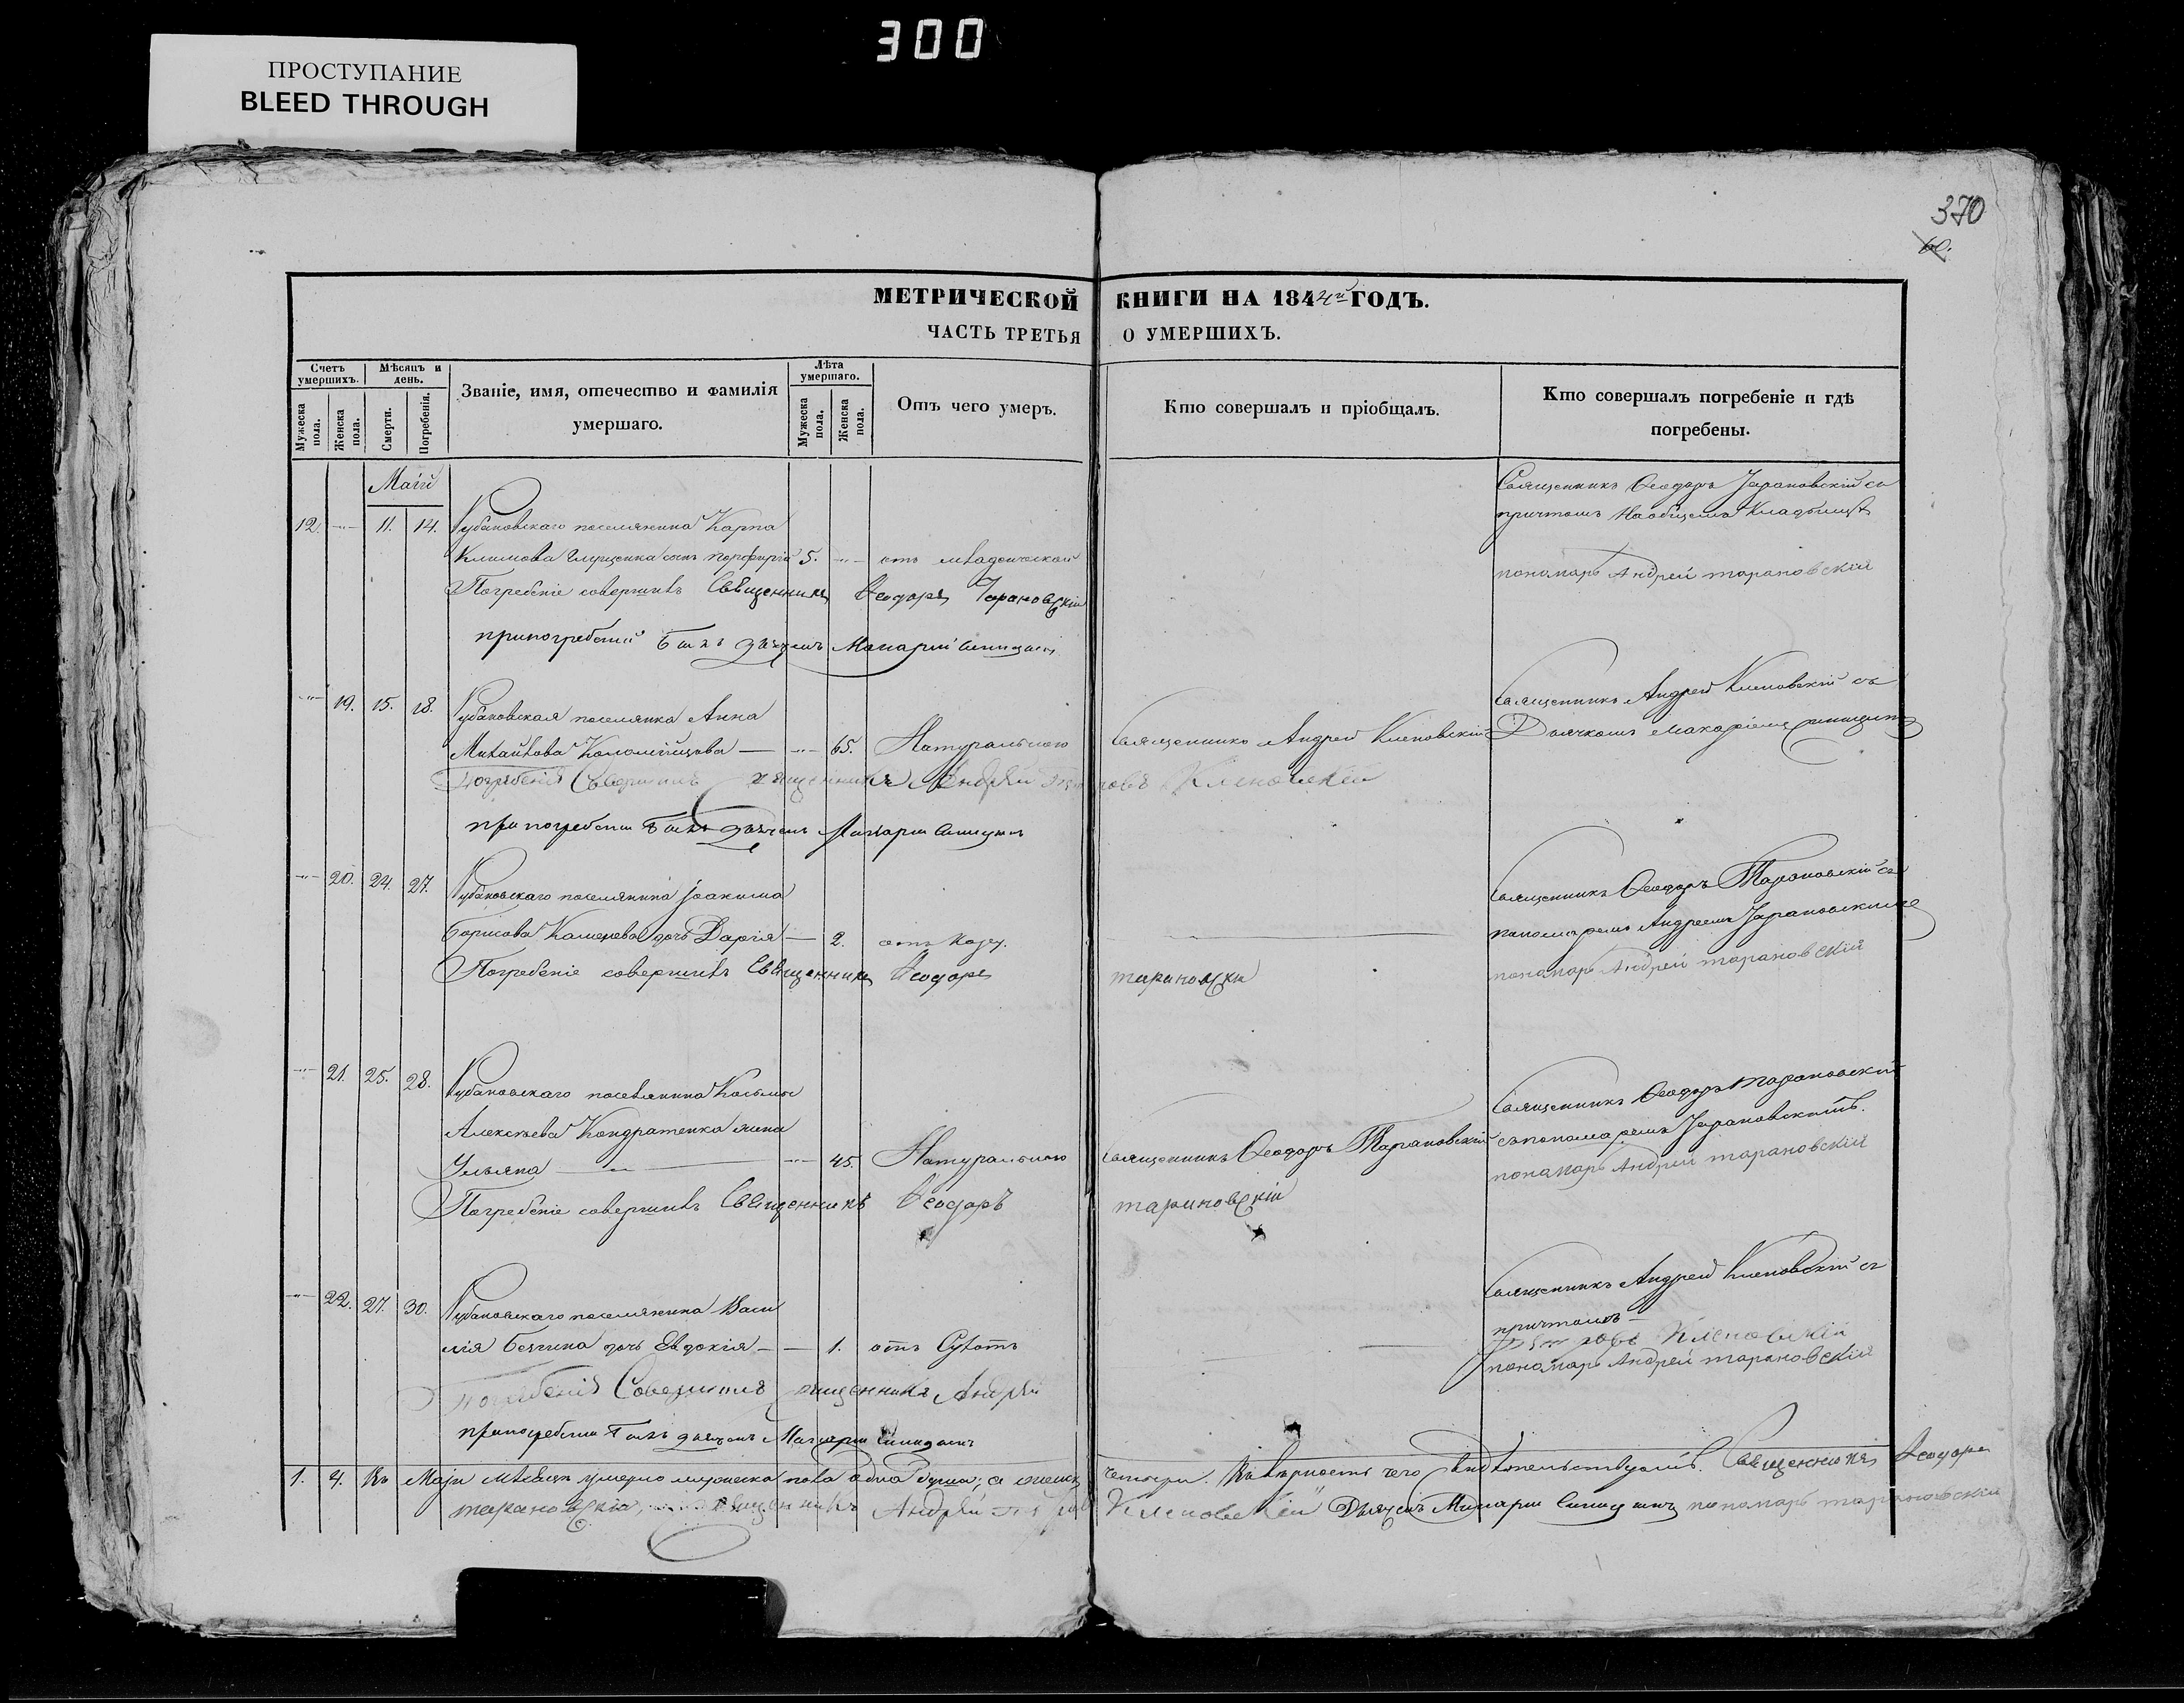 300
ПРОСТУПАНИЕ
BLEED THROUGH
370
60.
МЕТРИЧЕСКОЙ КНИГИ НА 1844й ГОДЪ.
ЧАСТЬ ТРЕТЬЯ О УМЕРШИХЪ.
Счетъ умершихъ.
Мѣсяцъ и день.
Званіе, имя, отечество и фамилія
умершаго.
Лѣта умершаго.
Отъ чего умеръ.
Кто совершалъ и пріобщалъ.
Кто совершалъ погребеніе и гдѣ
погребены.
Мужеска пола.
Женска пола.
Смерти.
Погребенія.
Мужеска пола.
Женска пола.
Маій
Священникъ Ѳеодоръ Тарановскій съ
12. 11. 14. Рубановскаго поселянина Карпа
причтомъ на общемъ кладбищѣ
Климова сынъ Порфирій 5. отъ младенческой
пономарь Андрей Тарановскій
Погребеніе совершилъ Священникъ Ѳеодоръ Тарановскій
при погребеніи былъ дьячекъ Макарій Синицынъ
19. 15. 18. Рубановская поселянка Анна
Священникъ Андрей Кленовскій съ
Михайлова Коломийцова 65. Натурально Священникъ Андрей Кленовскій
Дьячкомъ Макаріемъ Синицынъ
Погребеніе Совершилъ священникъ Андрей Петровъ Кленовскій
при погребеніи былъ дьячекъ Макарій Синицынъ
20. 24. 27. Рубановскаго поселянина Іоакима
Священникъ Ѳеодоръ Тарановскій съ
Борисова дочь Дарія 2. отъ
пономаремъ Андреемъ Тарановскимъ
Погребеніе совершилъ Священникъ Ѳеодоръ Тарановскій
пономарь Андрей Тарановскій
21. 25. 28. Рубановскаго поселянина Косьмы
Священникъ Ѳеодоръ Тарановскій
Алексѣева Кондратенка жена
съ пономаремъ Тарановскимъ.
Ульяна 45. Натурально Священникъ Ѳеодоръ Тарановскій
пономарь Андрей Тарановскій
Погребеніе совершилъ Священникъ Ѳеодоръ Тарановскій
22. 27. 30. Рубановскаго поселянина Васи
Священникъ Андрей Кленовскій съ
причтомъ
лія дочь Евдокія 1. отъ
Петровъ Кленовскій
пономарь Андрей Тарановскій
Погребеніе Совершилъ священникъ Андрей
при погребеніи былъ дьячекъ Макарій Синицынъ
1. 4. Въ Маіи мѣсяцѣ умерло мужеска пола одна душа; а женск четыри. Въ вѣрности чего свидѣтельствуемъ. Священникъ Ѳеодоръ
Тарановскій, священникъ Андрей Петровъ Кленовскій Дьячекъ Макарій Синицынъ пономарь Тарановскій